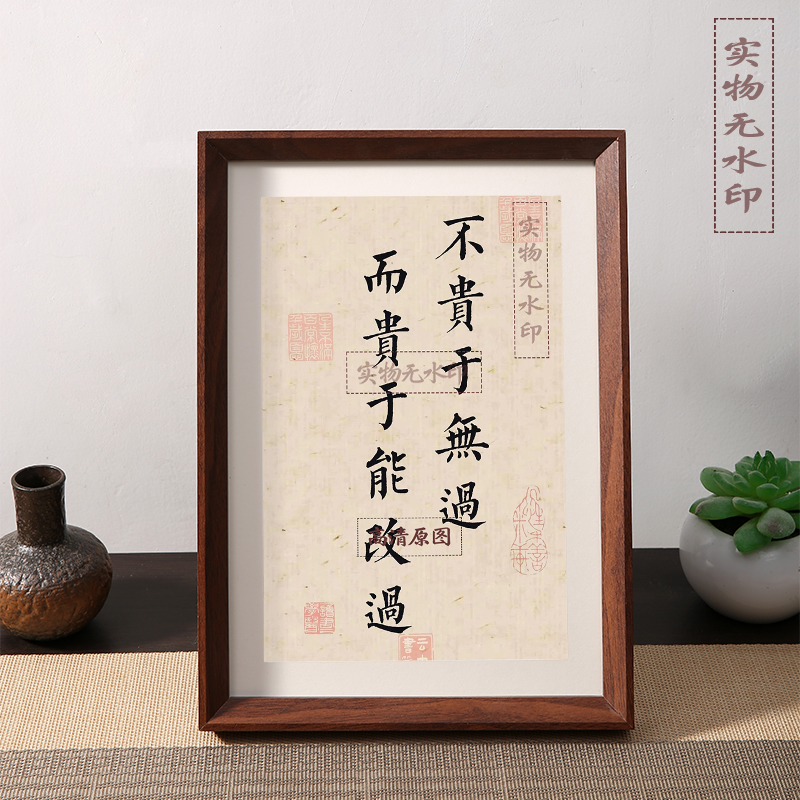 不貴于無過
而貴于能改過
实物无水印
实物无水印
实物无水印
高清原图